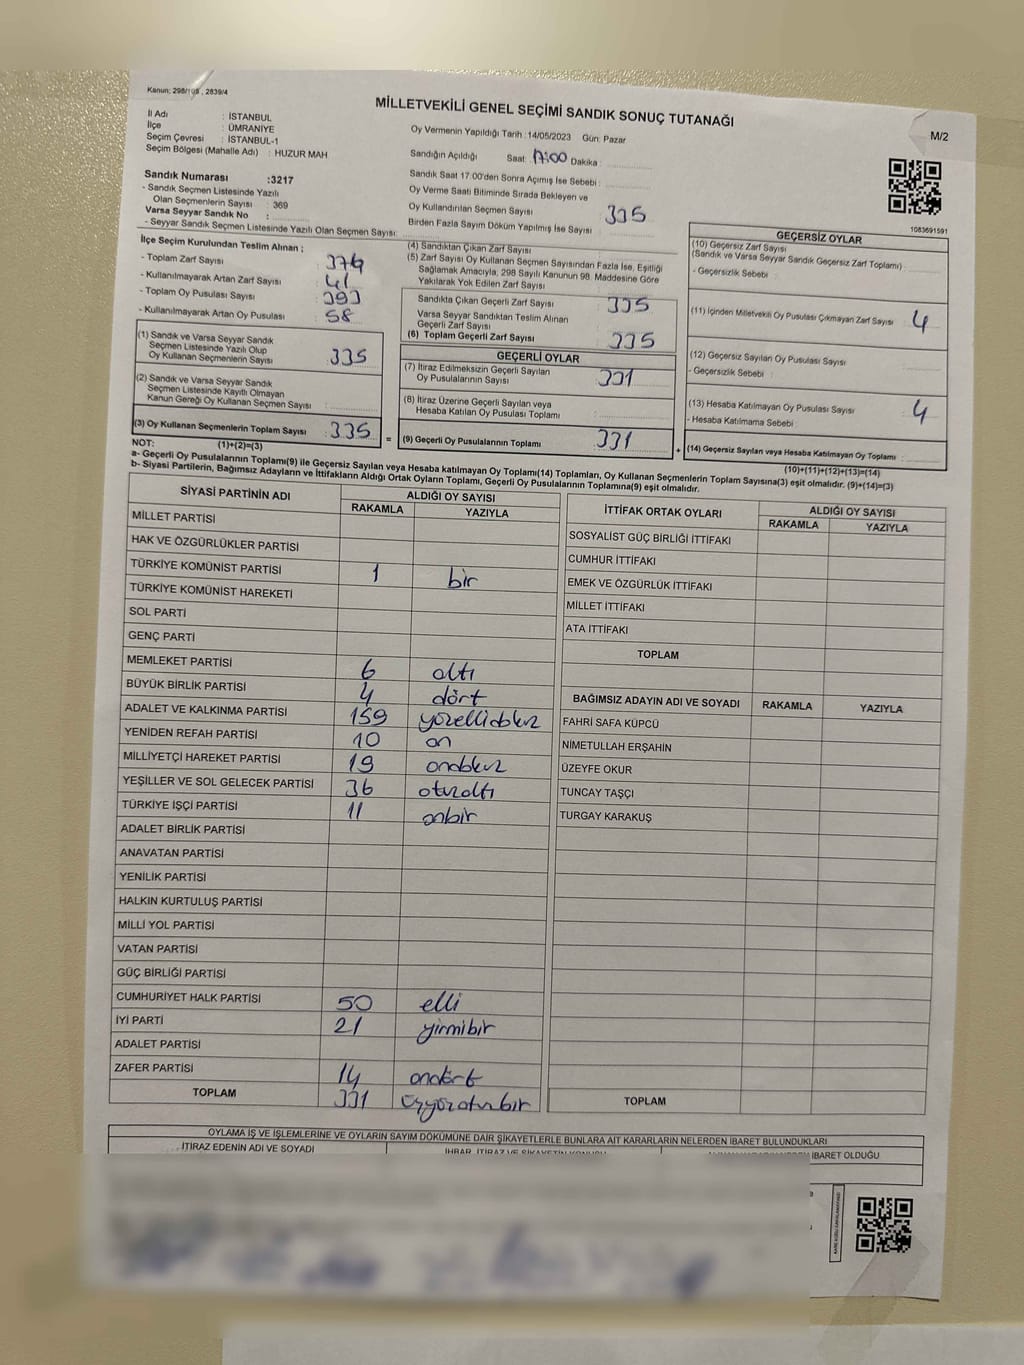 Kanun; 298/108 , 2839/4
MİLLETVEKİLİ GENEL SEÇİMİ SANDIK SONUÇ TUTANAĞI
M/2
İl Adı : İSTANBUL
İlçe : ÜMRANİYE
Seçim Çevresi : İSTANBUL-1
Seçim Bölgesi (Mahalle Adı) : HUZUR MAH
Oy Vermenin Yapıldığı Tarih :14/05/2023 Gün: Pazar
Sandığın Açıldığı Saat: 17:00 Dakika :
Sandık Saat 17.00'den Sonra Açımış İse Sebebi :
Oy Verme Saati Bitiminde Sırada Bekleyen ve
Oy Kullandırılan Seçmen Sayısı : 335
Birden Fazla Sayım Döküm Yapılmış İse Sayısı :
Sandık Numarası :3217
- Sandık Seçmen Listesinde Yazılı
Olan Seçmenlerin Sayısı : 369
Varsa Seyyar Sandık No :
- Seyyar Sandık Seçmen Listesinde Yazılı Olan Seçmen Sayısı:
1083691591
İlçe Seçim Kurulundan Teslim Alınan ;
- Toplam Zarf Sayısı : 376
- Kullanılmayarak Artan Zarf Sayısı : 41
- Toplam Oy Pusulası Sayısı : 393
- Kullanılmayarak Artan Oy Pusulası : 58
(1) Sandık ve Varsa Seyyar Sandık
Seçmen Listesinde Yazılı Olup
Oy Kullanan Seçmenlerin Sayısı : 335
(2) Sandık ve Varsa Seyyar Sandık
Seçmen Listesinde Kayıtlı Olmayan
Kanun Gereği Oy Kullanan Seçmen Sayısı :
(3) Oy Kullanan Seçmenlerin Toplam Sayısı : 335
NOT: (1)+(2)=(3)
(4) Sandıktan Çıkan Zarf Sayısı :
(5) Zarf Sayısı Oy Kullanan Seçmen Sayısından Fazla İse, Eşitliği
Sağlamak Amacıyla, 298 Sayılı Kanunun 98. Maddesine Göre
Yakılarak Yok Edilen Zarf Sayısı :
Sandıkta Çıkan Geçerli Zarf Sayısı : 335
Varsa Seyyar Sandıktan Teslim Alınan
Geçerli Zarf Sayısı :
(6) Toplam Geçerli Zarf Sayısı : 335
GEÇERLİ OYLAR
(7) İtiraz Edilmeksizin Geçerli Sayılan
Oy Pusulalarının Sayısı : 331
(8) İtiraz Üzerine Geçerli Sayılan veya
Hesaba Katılan Oy Pusulası Toplamı :
= (9) Geçerli Oy Pusulalarının Toplamı : 331 +
GEÇERSİZ OYLAR
(10) Geçersiz Zarf Sayısı
(Sandık ve Varsa Seyyar Sandık Geçersiz Zarf Toplamı) :
- Geçersizlik Sebebi :
(11) İçinden Milletvekili Oy Pusulası Çıkmayan Zarf Sayısı : 4
(12) Geçersiz Sayılan Oy Pusulası Sayısı :
- Geçersizlik Sebebi :
(13) Hesaba Katılmayan Oy Pusulası Sayısı : 4
- Hesaba Katılmama Sebebi :
(14) Geçersiz Sayılan veya Hesaba Katılmayan Oy Toplamı :
(10)+(11)+(12)+(13)=(14)
a- Geçerli Oy Pusulalarının Toplamı(9) ile Geçersiz Sayılan veya Hesaba katılmayan Oy Toplamı(14) Toplamları, Oy Kullanan Seçmenlerin Toplam Sayısına(3) eşit olmalıdır. (9)+(14)=(3)
b- Siyasi Partilerin, Bağımsız Adayların ve İttifakların Aldığı Ortak Oyların Toplamı, Geçerli Oy Pusulalarının Toplamına(9) eşit olmalıdır.
SİYASİ PARTİNİN ADI ALDIĞI OY SAYISI
RAKAMLA YAZIYLA
MİLLET PARTİSİ
HAK VE ÖZGÜRLÜKLER PARTİSİ
TÜRKİYE KOMÜNİST PARTİSİ 1 bir
TÜRKİYE KOMÜNİST HAREKETİ
SOL PARTİ
GENÇ PARTİ
MEMLEKET PARTİSİ 6 altı
BÜYÜK BİRLİK PARTİSİ 4 dört
ADALET VE KALKINMA PARTİSİ 159 yüzellidokuz
YENİDEN REFAH PARTİSİ 10 on
MİLLİYETÇİ HAREKET PARTİSİ 19 ondokuz
YEŞİLLER VE SOL GELECEK PARTİSİ 36 otuzaltı
TÜRKİYE İŞÇİ PARTİSİ 11 onbir
ADALET BİRLİK PARTİSİ
ANAVATAN PARTİSİ
YENİLİK PARTİSİ
HALKIN KURTULUŞ PARTİSİ
MİLLİ YOL PARTİSİ
VATAN PARTİSİ
GÜÇ BİRLİĞİ PARTİSİ
CUMHURİYET HALK PARTİSİ 50 elli
İYİ PARTİ 21 yirmibir
ADALET PARTİSİ
ZAFER PARTİSİ 14 ondört
TOPLAM 331 üçyüzotuzbir
İTTİFAK ORTAK OYLARI ALDIĞI OY SAYISI
RAKAMLA YAZIYLA
SOSYALİST GÜÇ BİRLİĞİ İTTİFAKI
CUMHUR İTTİFAKI
EMEK VE ÖZGÜRLÜK İTTİFAKI
MİLLET İTTİFAKI
ATA İTTİFAKI
TOPLAM
BAĞIMSIZ ADAYIN ADI VE SOYADI RAKAMLA YAZIYLA
FAHRİ SAFA KÜPCÜ
NİMETULLAH ERŞAHİN
ÜZEYFE OKUR
TUNCAY TAŞÇI
TURGAY KARAKUŞ
TOPLAM
OYLAMA İŞ VE İŞLEMLERİNE VE OYLARIN SAYIM DÖKÜMÜNE DAİR ŞİKAYETLERLE BUNLARA AİT KARARLARIN NELERDEN İBARET BULUNDUKLARI
İTİRAZ EDENİN ADI VE SOYADI İHBAR, İTİRAZ VE ŞİKAYETİN KONUSU İBARET OLDUĞU